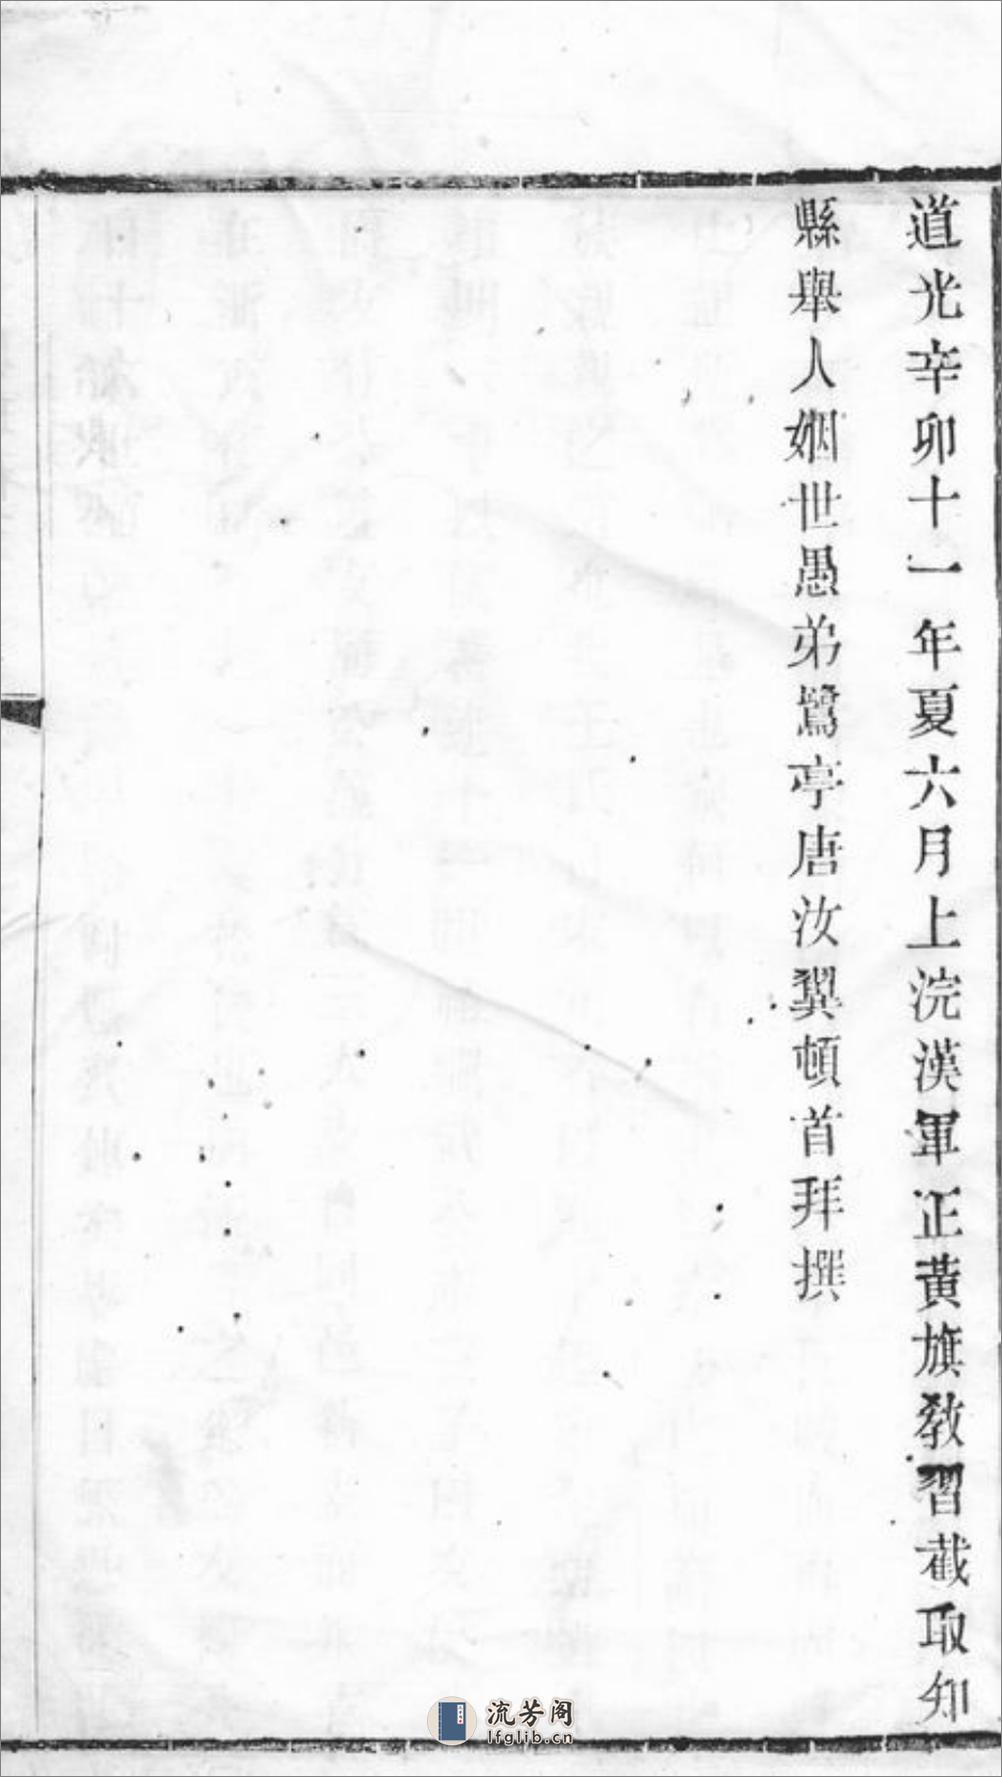 道光辛卯十一年夏六月上浣漢軍正黃旗教習截取知
縣舉人姻世愚弟鷺亭唐汝翼頓首拜撰
流芳阁
lfglib.cn